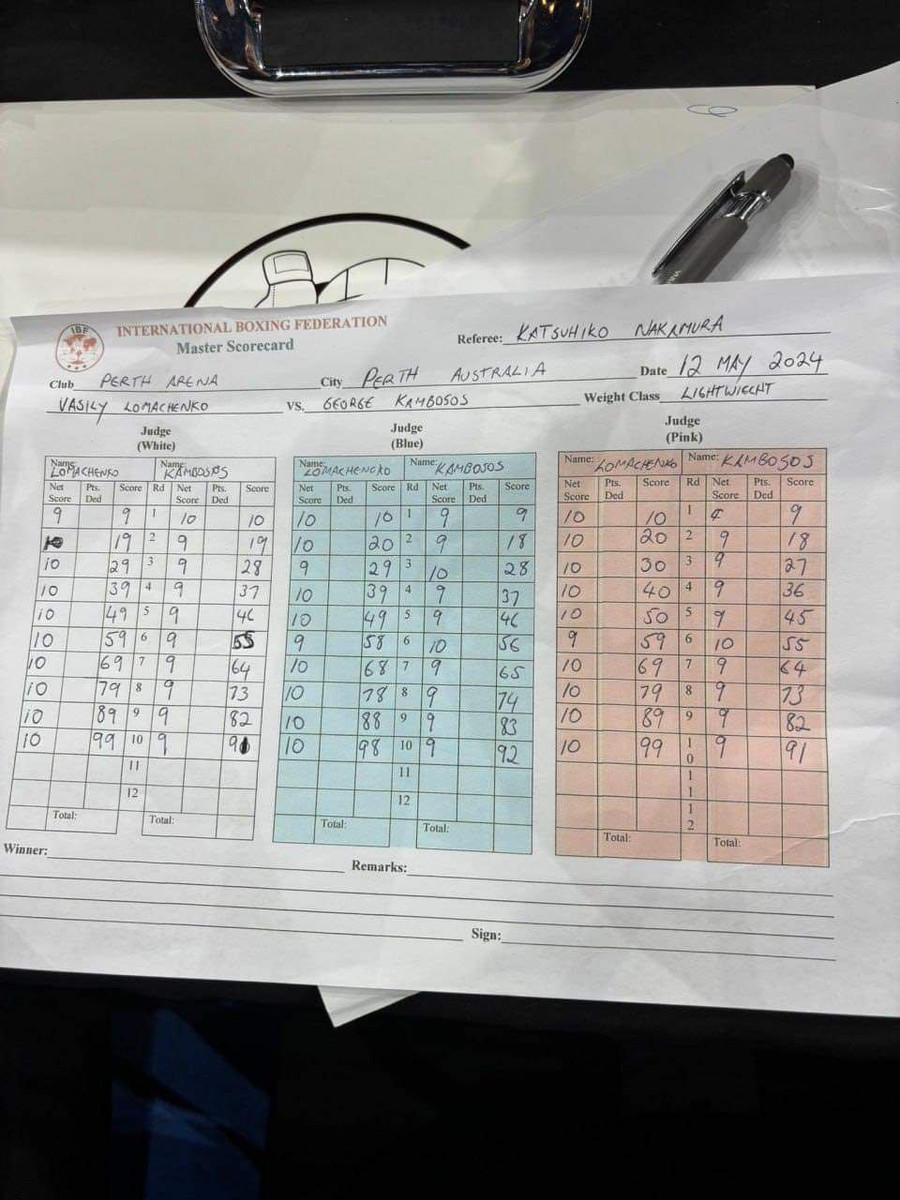 IBF
INTERNATIONAL BOXING FEDERATION
Master Scorecard
Referee: KATSUHIKO NAKAMURA
Club PERTH ARENA City PERTH AUSTRALIA Date 12 MAY 2024
VASILY LOMACHENKO VS. GEORGE KAMBOSOS Weight Class LIGHTWIEGHT
Judge Judge Judge
(White) (Blue) (Pink)
Name: LOMACHENKO Name: KAMBOSOS Name: LOMACHENCKO Name: KAMBOSOS Name: LOMACHENKO Name: KAMBOSOS
Net Score Pts. Ded Score Rd Net Score Pts. Ded Score Net Score Pts. Ded Score Rd Net Score Pts. Ded Score Net Score Pts. Ded Score Rd Net Score Pts. Ded Score
9 9 1 10 10 10 10 1 9 9 10 10 1 9
10 19 2 9 19 10 20 2 9 18 10 20 2 9 18
10 29 3 9 28 9 29 3 10 28 10 30 3 9 27
10 39 4 9 37 10 39 4 9 37 10 40 4 9 36
10 49 5 9 46 10 49 5 9 46 10 50 5 9 45
10 59 6 9 55 9 58 6 10 56 9 59 6 10 55
10 69 7 9 64 10 68 7 9 65 10 69 7 9 64
10 79 8 9 73 10 78 8 9 74 10 79 8 9 73
10 89 9 9 82 10 88 9 9 83 10 89 9 9 82
10 99 10 9 91 10 98 10 9 92 10 99 10 9 91
11 11 11
12 12 12
Total: Total: Total: Total: Total: Total:
Winner: Remarks:
Sign: